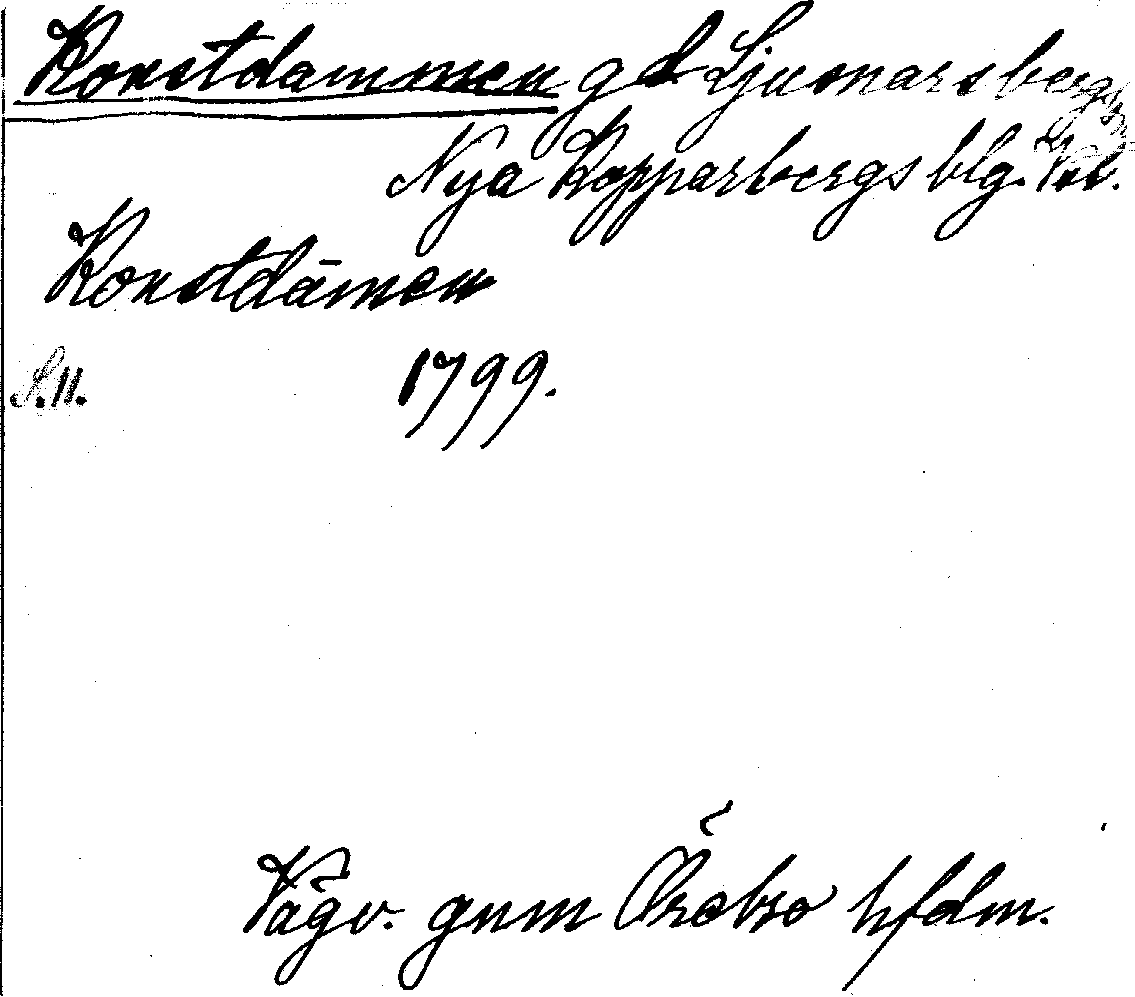 Konstdammen gd Ljusnarsbergs sn
Nya Kopparbergs blg. Vstm.
Konstdam̄en
S. 11. 1799.
Vägv. gnm Örebro hfdm.